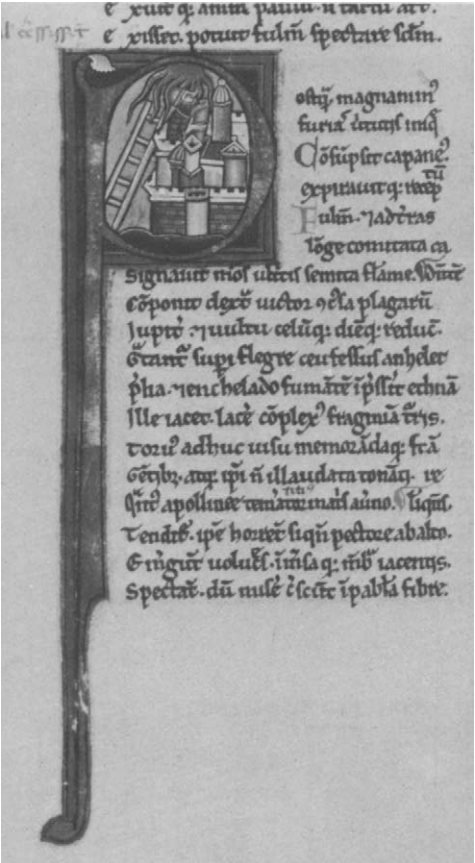 e xuit q; anima paulū .
e xisset. potuit fulm̄ spectare scdm̄.
P ostq̄. magnanim⁹
furia᷑ ūtutis iniq̄
Cōsūpsit capane⁹.
tū
expirauit q; recep
Fulm̄. ⁊ ad t̄ras
lōge comitata ca
signauit mos ult̄cis semita flāme. dēntē
Cōponit dext̄ uictor  plagarū
Iupit̄ ⁊ uultu celūq; diēq; reduc̄.
G̃tant᷑ supi flegre ceu fessus anhelet
p̄lia. ⁊ enchelado fumātē īp̄ss̄it ethnā
Ille iacet. lac̄e cōplex⁹ fragmina t̄ris.
toru⁹ adhuc uisu memorādaq; fc̄ā
Gētib;. atq; ip̄i n̄ illaudata tonāti. re
 apollinee  mat̄s au̅no. liq̄ns.
Tendit᷑. ip̄e horret si qn̄ pectore ab alto.
Em̄gūt uoluc̄s. īm̄sa q; mēb̄ iacentis.
Spectāt. dū mise᷑ c̄scūt ī pabl̄a fibre.